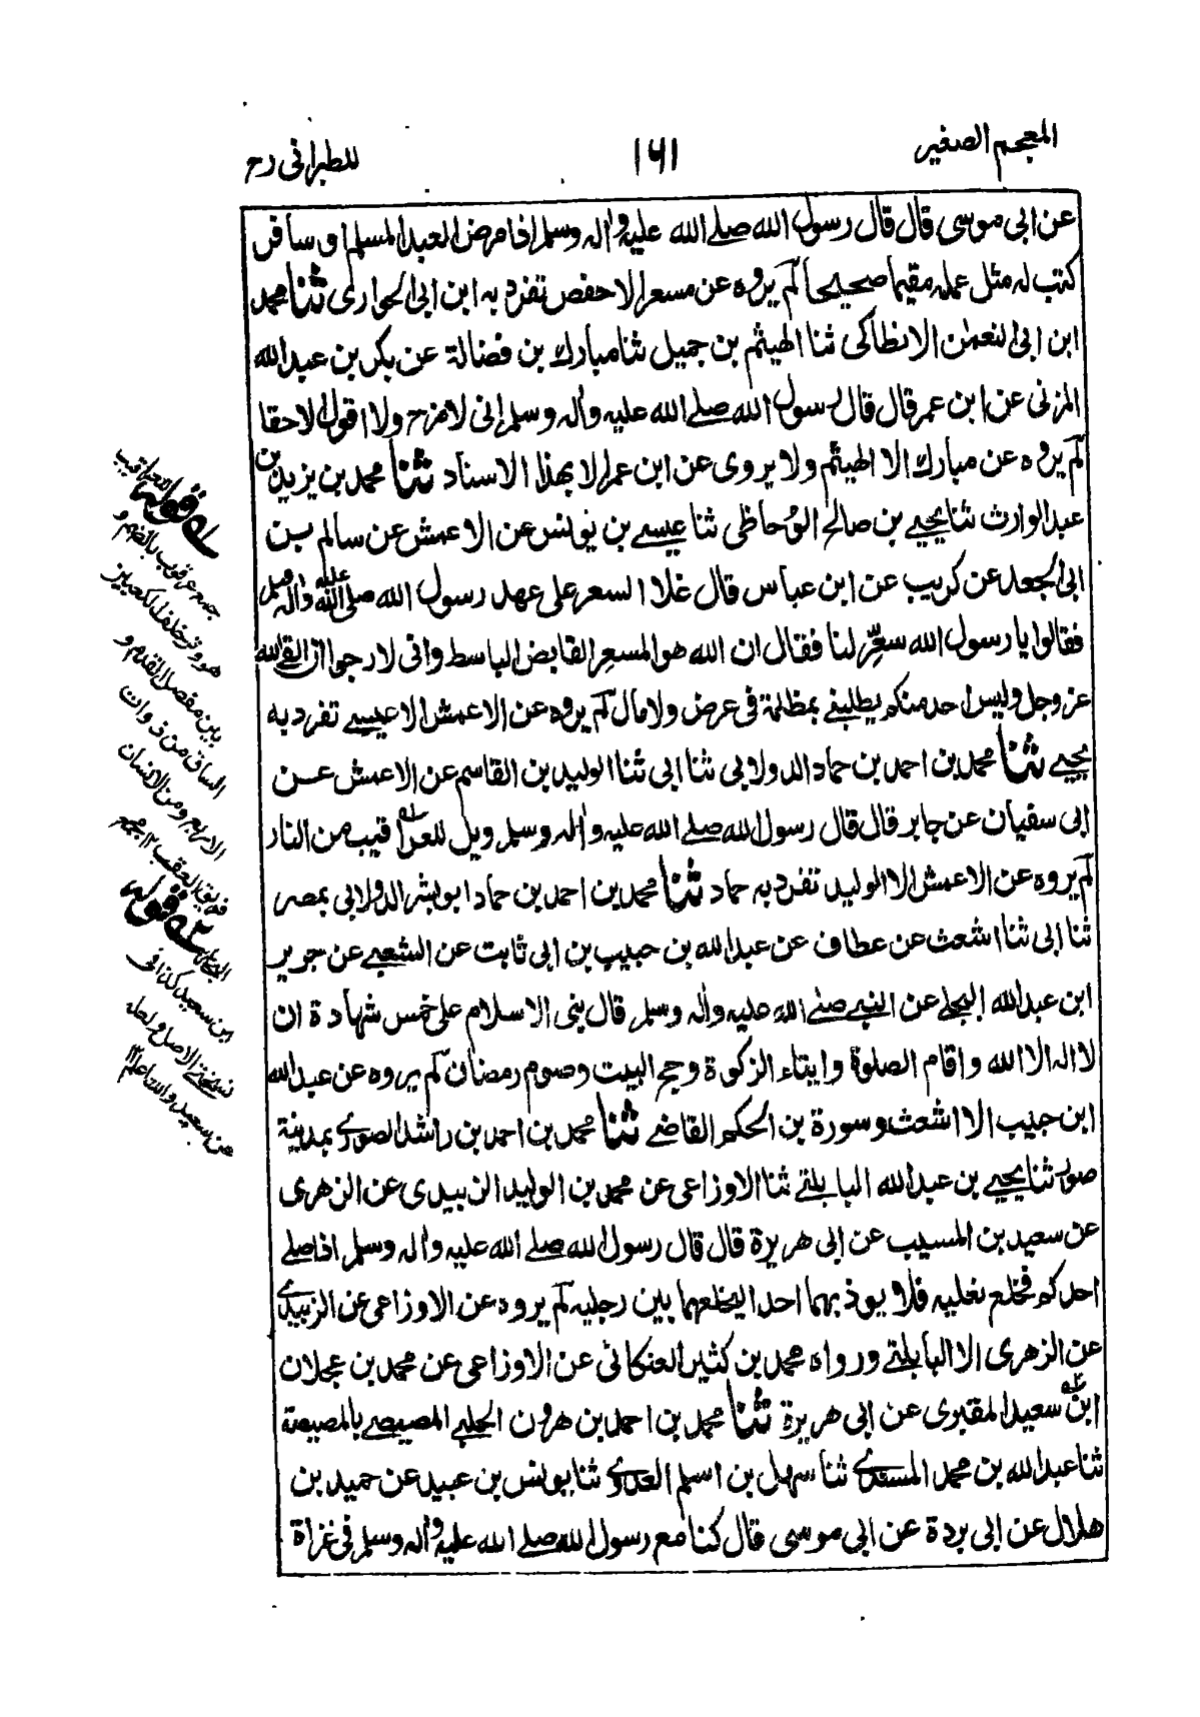 المعجم الصغير
١٦١
للطبرانى رح
عن ابى موسى قال قال رسول الله صلے الله عليه واله وسلم اذا مرض العبد المسلم او سافر
كتب له مثل عمله مقيما صحيحا لم يروه عن مسعر الا حفص تفرد به ابن ابى الحوارى ثنا محمد
ابن ابى النعمٰن الانطاكى ثنا الهيثم بن جميل ثنا مبارك بن فضالة عن بكر بن عبد الله
المزنى عن ابن عمر قال قال رسول الله صلے الله عليه واله وسلم انى لامزح ولا اقول الا حقا
لم يروه عن مبارك الا الهيثم ولا يروى عن ابن عمر الا بهذا الاسناد ثنا محمد بن يزيد بن
عبد الوارث ثنا يحيے بن صالح الوُحاظى ثنا عيسے بن يونس عن الاعمش عن سالم بن
ابى الجعد عن كريب عن ابن عباس قال غلا السعر على عهد رسول الله صلى الله عليه واله وسلم
فقالوا يا رسول الله سعِّر لنا فقال ان الله هو المسعر القابض الباسط وانى لارجوا ان القى الله
عز وجل وليس احد منكم يطلبنے بمظلمة فى عرض ولا مال لم يروه عن الاعمش الا عيسے تفرد به
يحيے ثنا محمد بن احمد بن حماد الدولابى ثنا ابى ثنا الوليد بن القاسم عن الاعمش عن
ابى سفيان عن جابر قال قال رسول الله صلے الله عليه واله وسلم ويل للعراقيب من النار
لم يروه عن الاعمش الا الوليد تفرد به حماد ثنا محمد بن احمد بن حماد ابو بشر الدولابى بمصر
ثنا ابى ثنا اشعث عن عطاف عن عبد الله بن حبيب بن ابى ثابت عن الشعبے عن جرير
ابن عبد الله البجلے عن النبے صلے الله عليه واله وسلم قال بنى الاسلام على خمس شهادة ان
لا اله الا الله واقام الصلوة وايتاء الزكوة وحج البيت وصوم رمضان لم يروه عن عبد الله
ابن حبيب الا اشعث وسورة بن الحكم القاضے ثنا محمد بن احمد بن راشد الصورى بمدينة
صور ثنا يحيے بن عبد الله البابلتے ثنا الاوزاعى عن محمد بن الوليد الزبيدى عن الزهرى
عن سعيد بن المسيب عن ابى هريرة قال قال رسول الله صلے الله عليه واله وسلم اذا صلے
احدكم فخلع نعليه فلا يوذ بهما احدا ليخلعهما بين رجليه لم يروه عن الاوزاعى عن الزبيدے
عن الزهرى الا البابلتے ورواه محمد بن كثير الصنعانى عن الاوزاعى عن محمد بن عجلان
ابن سعيد المقبرى عن ابى هريرة ثنا محمد بن احمد بن هرون الحلبے المصيصے بالمصيصة
ثنا عبد الله بن محمد المسندے ثنا سهل بن اسلم العدوے ثنا يونس بن عبيد عن حميد بن
هلال عن ابى بردة عن ابى موسى قال كنا مع رسول الله صلے الله عليه واله وسلم فى غزاة
له قوله للعراقيب
جمع عرقوب بالضم و
هو وتر خلف الكعبين
بين مفصل القدم و
الساق من ذوات
الاربع ومن الانسان
فويق العقب ١٢ مجمع
٢ه قوله
ابن سعيد كذا فى
نسخة الاصل ولعله
عن سعيد والله اعلم ١٢